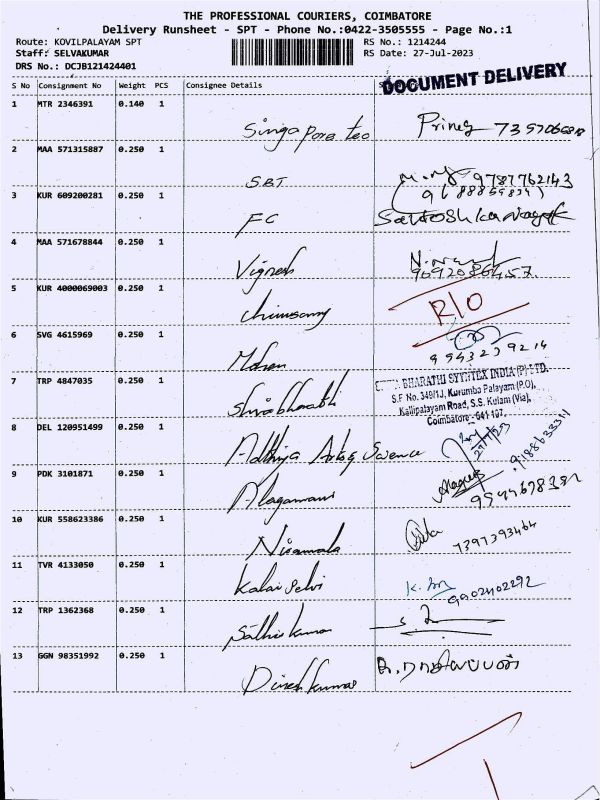 THE PROFESSIONAL COURIERS, COIMBATORE
Delivery Runsheet - SPT - Phone No.:0422-3505555 - Page No.:1
Route: KOVILPALAYAM SPT RS No.: 1214244
Staff: SELVAKUMAR RS Date: 27-Jul-2023
DRS No.: DCJB121424401
DOCUMENT DELIVERY
S No Consignment No Weight PCS Consignee Details
1 MTR 2346391 0.140 1
Singapore Princy
2 MAA 571315887 0.250 1
SBT 9787762143
3 KUR 609200281 0.250 1
FC
4 MAA 571678844 0.250 1
Vignesh 9092086457
5 KUR 4000069003 0.250 1
Chinnsamy R/O
6 SVG 4615969 0.250 1
9943239214
7 TRP 4847035 0.250 1
BHARATHI SYNTEX INDIA (P) LTD.
S.F No. 349/1J, Kurumba Palayam (P.O),
Kallipalayam Road, S.S. Kulam (Via),
Coimbatore - 641 107.
8 DEL 120951499 0.250 1
Adthiya Arts & Science
9 PDK 3101871 0.250 1
10 KUR 558623386 0.250 1
7397393464
11 TVR 4133050 0.250 1
Kalai Selvi 9902402292
12 TRP 1362368 0.250 1
Sathis kumar
13 GGN 98351992 0.250 1
Dinesh kumar